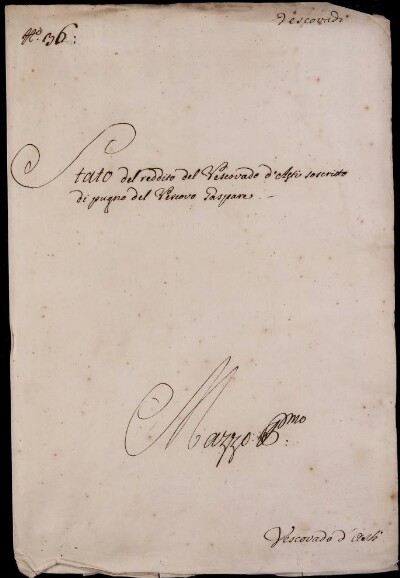 Vescovadi
N.º 136:
Stato del reddito del Vescovado d'Asti soscritto
di pugno del Vescovo Gaspare. –
Mazzo P.mo:
Vescovado d'Asti